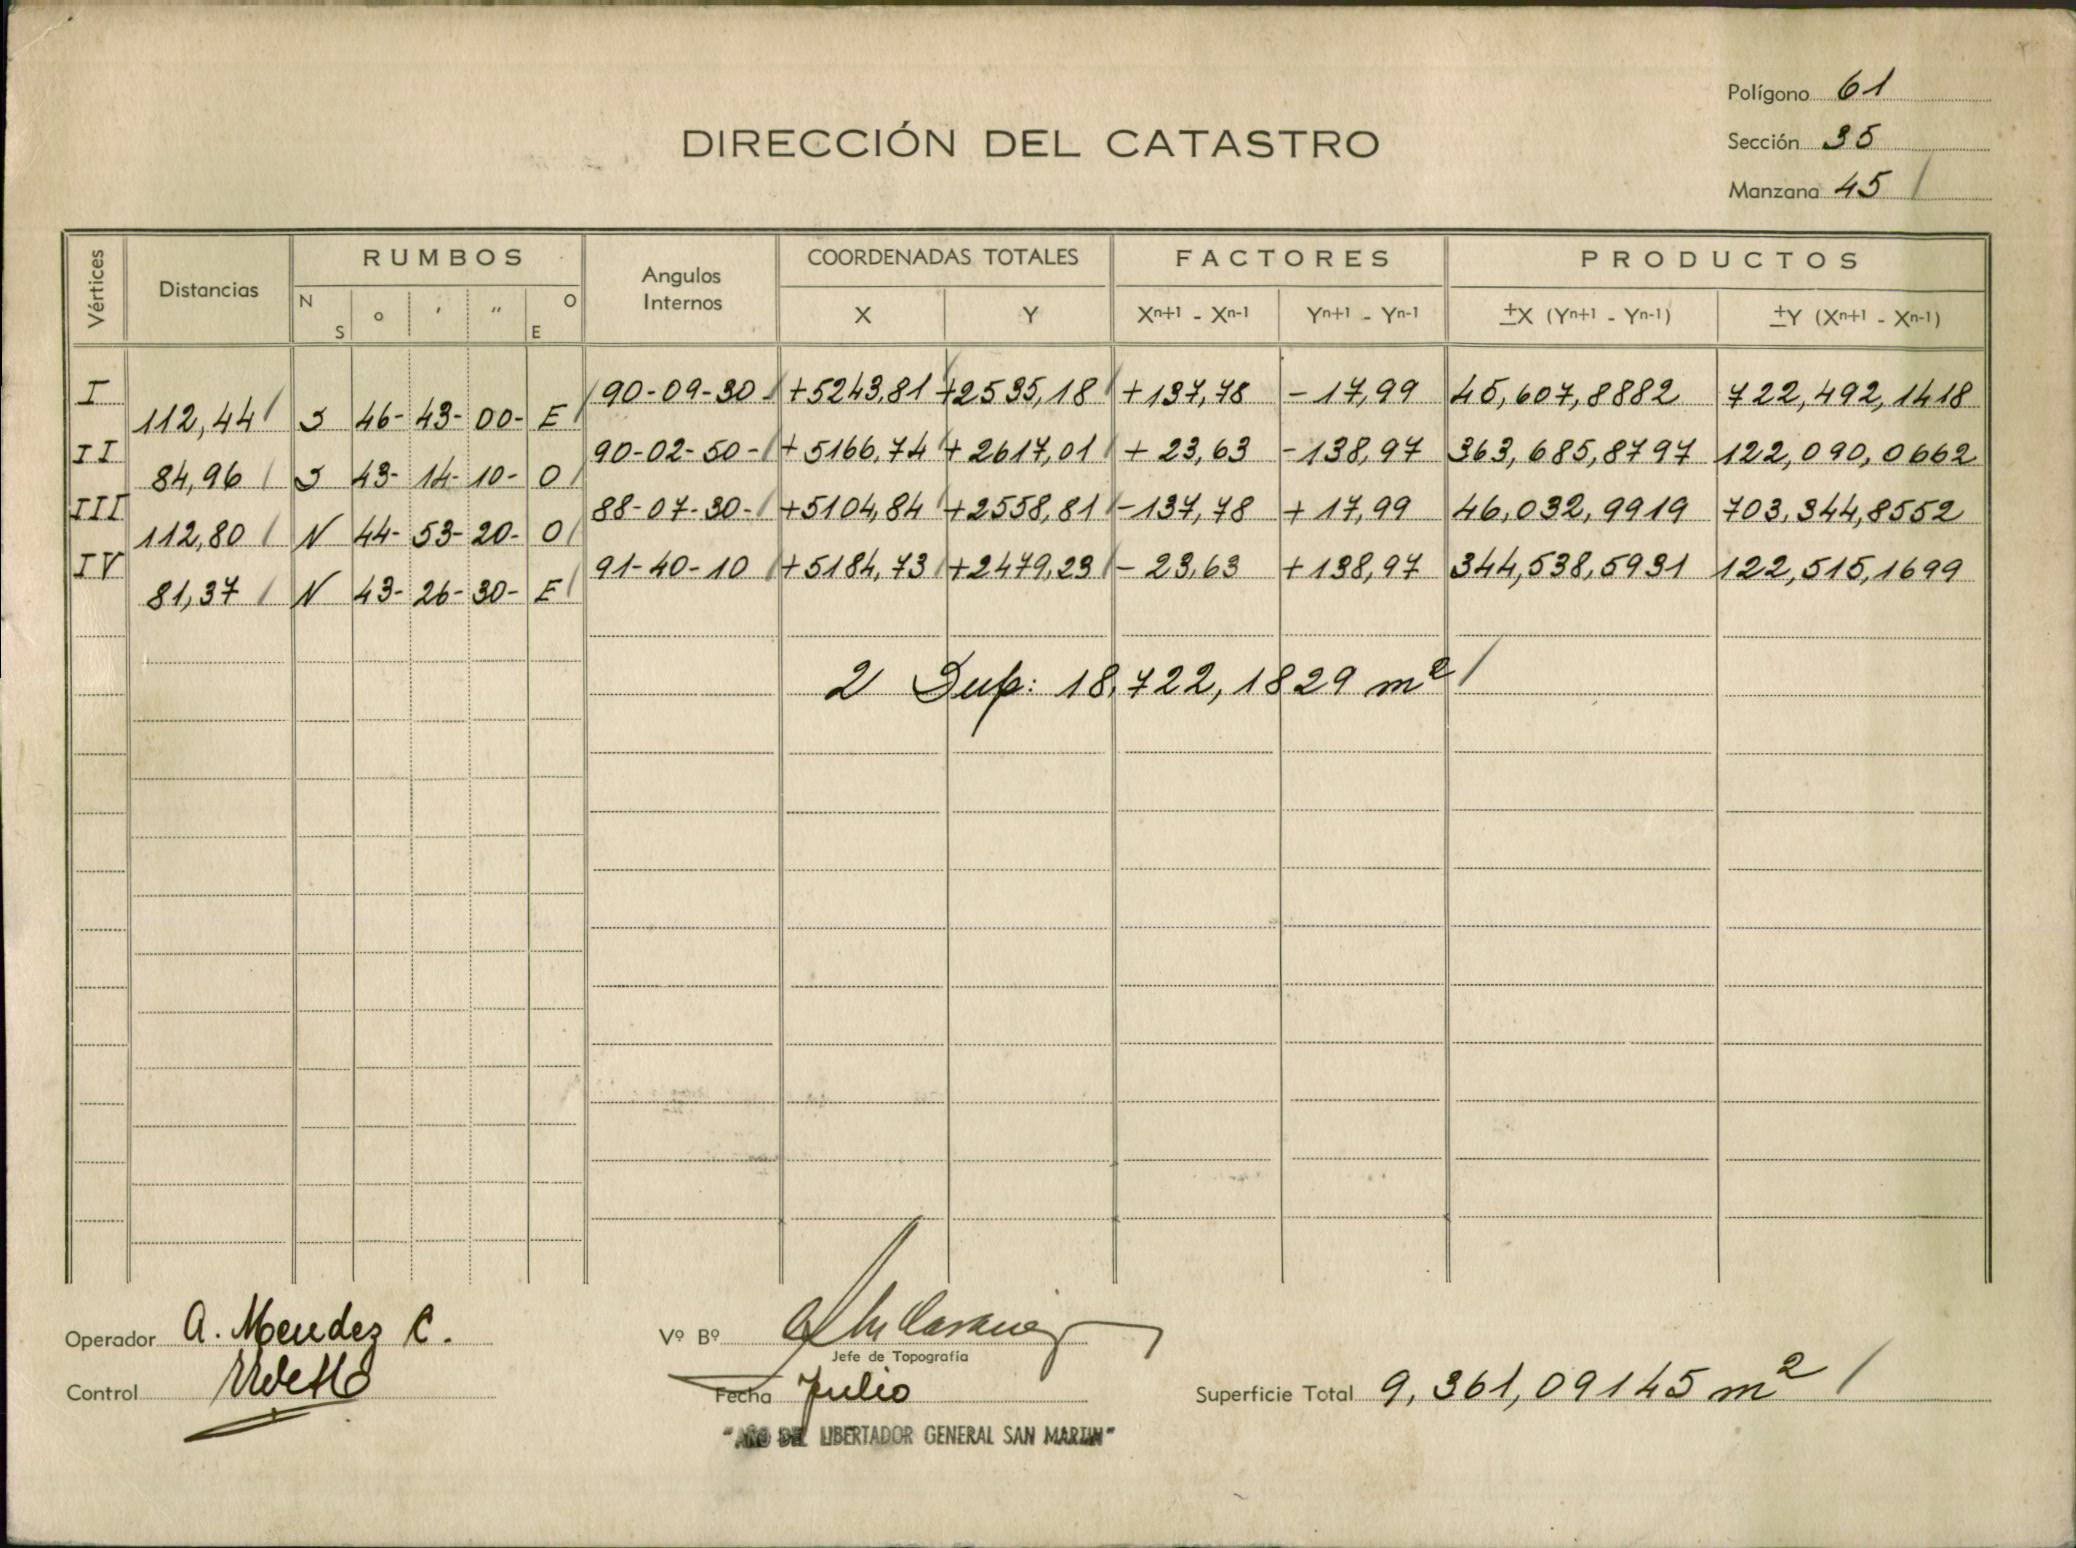 Polígono 61
DIRECCIÓN DEL CATASTRO
Sección 35
Manzana 45 /
Vértices Distancias RUMBOS Angulos Internos COORDENADAS TOTALES FACTORES PRODUCTOS
N S ° ' " O E X Y Xn+1 - Xn-1 Yn+1 - Yn-1 ±X (Yn+1 - Yn-1) ±Y (Xn+1 - Xn-1)
I 90-09-30 +5243,81 +2535,18 +137,78 -17,99 45,607,8882 722,492,1418
112,44 / S 46- 43- 00- E /
II 90-02-50- / +5166,74 +2617,01 +23,63 -138,97 363,685,8797 122,090,0662
84,96 / S 43- 14- 10- O /
III 88-07-30- / +5104,84 +2558,81 -137,78 +17,99 46,032,9919 703,344,8552
112,80 / N 44- 53- 20- O /
IV 91-40-10 / +5184,73 +2479,23 -23,63 +138,97 344,538,5931 122,515,1699
81,37 / N 43- 26- 30- E /
2 Sup: 18,722,1829 m² /
Operador A. Mendez C. Vº Bº
Jefe de Topografía
Control Fecha Julio Superficie Total 9,361,09145 m² /
"AÑO DEL LIBERTADOR GENERAL SAN MARTIN"